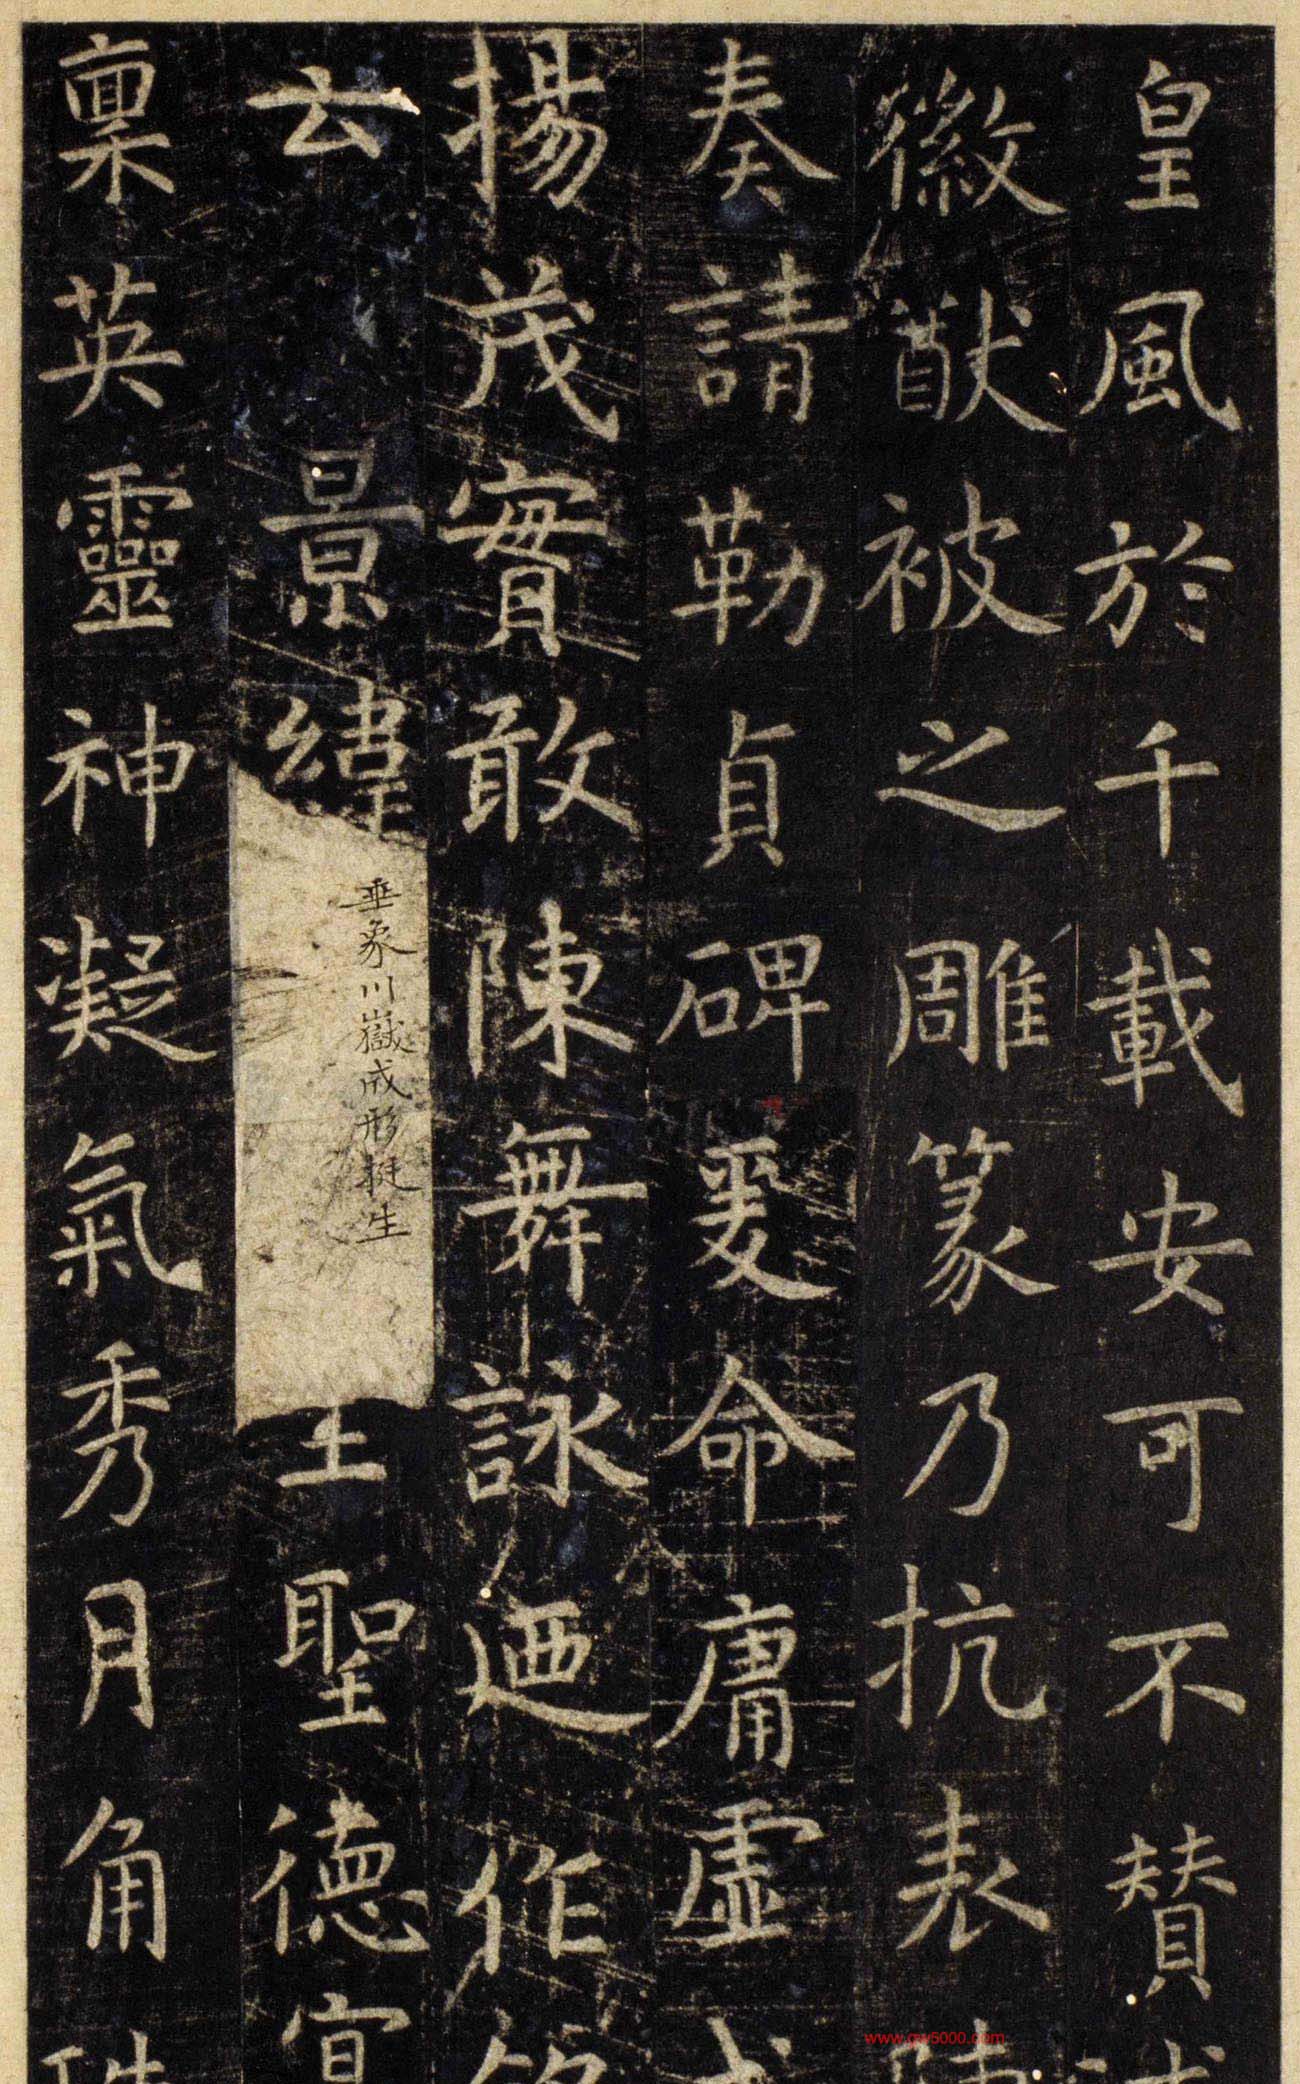 皇風於千載安可不贊
徽猷被之雕篆乃抗表
奏請勒貞碑爰命庸虛
揚茂實敢陳舞詠迺作
云景緯
垂象川嶽成形挺生
王聖德宣
稟英靈神凝氣秀月角
www.gw5000.com